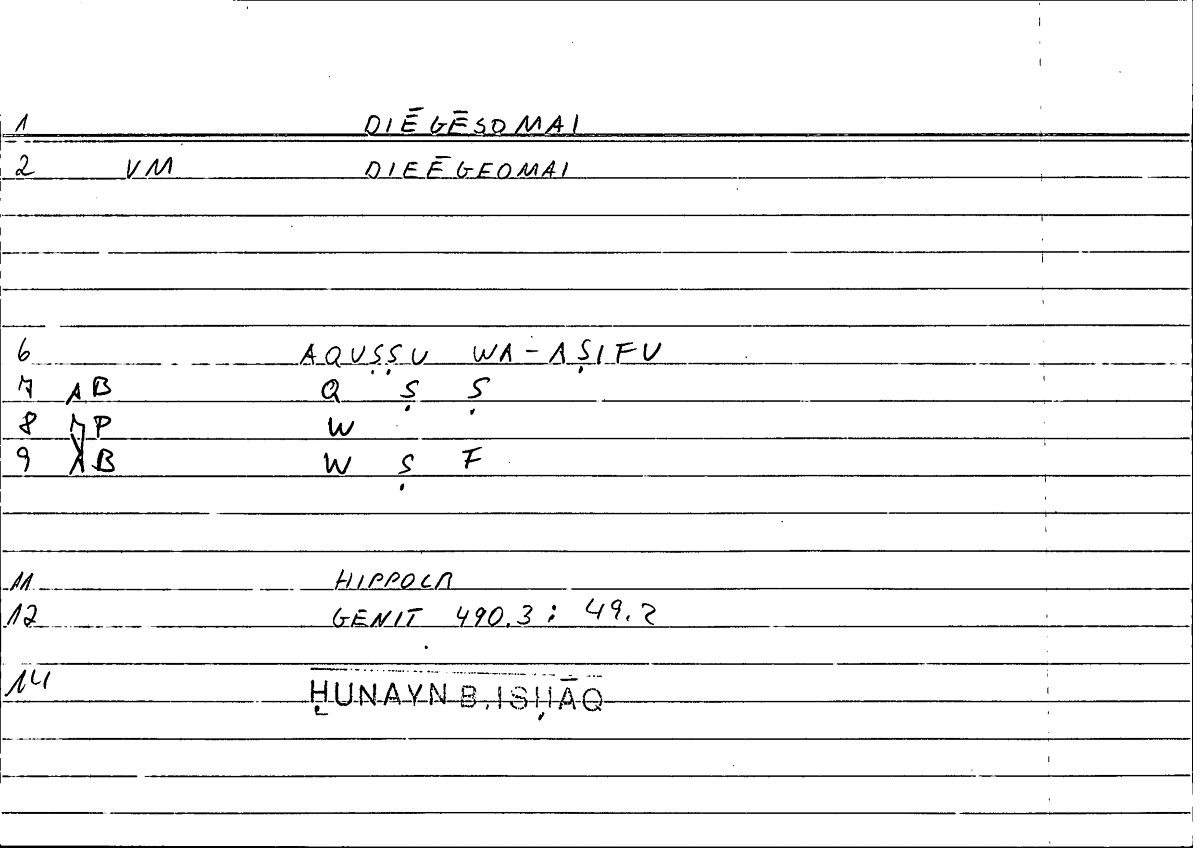 1 DIĒGĒSOMAI
2 VM DIEĒGEOMAI
6 AQUṢṢU WA-AṢIFU
7 AB Q Ṣ Ṣ
8 P W
9 AB W Ṣ F
11 HIPPOCR
12 GENIT 490.3 : 49.2
14 ḤUNAYN B. ISḤĀQ